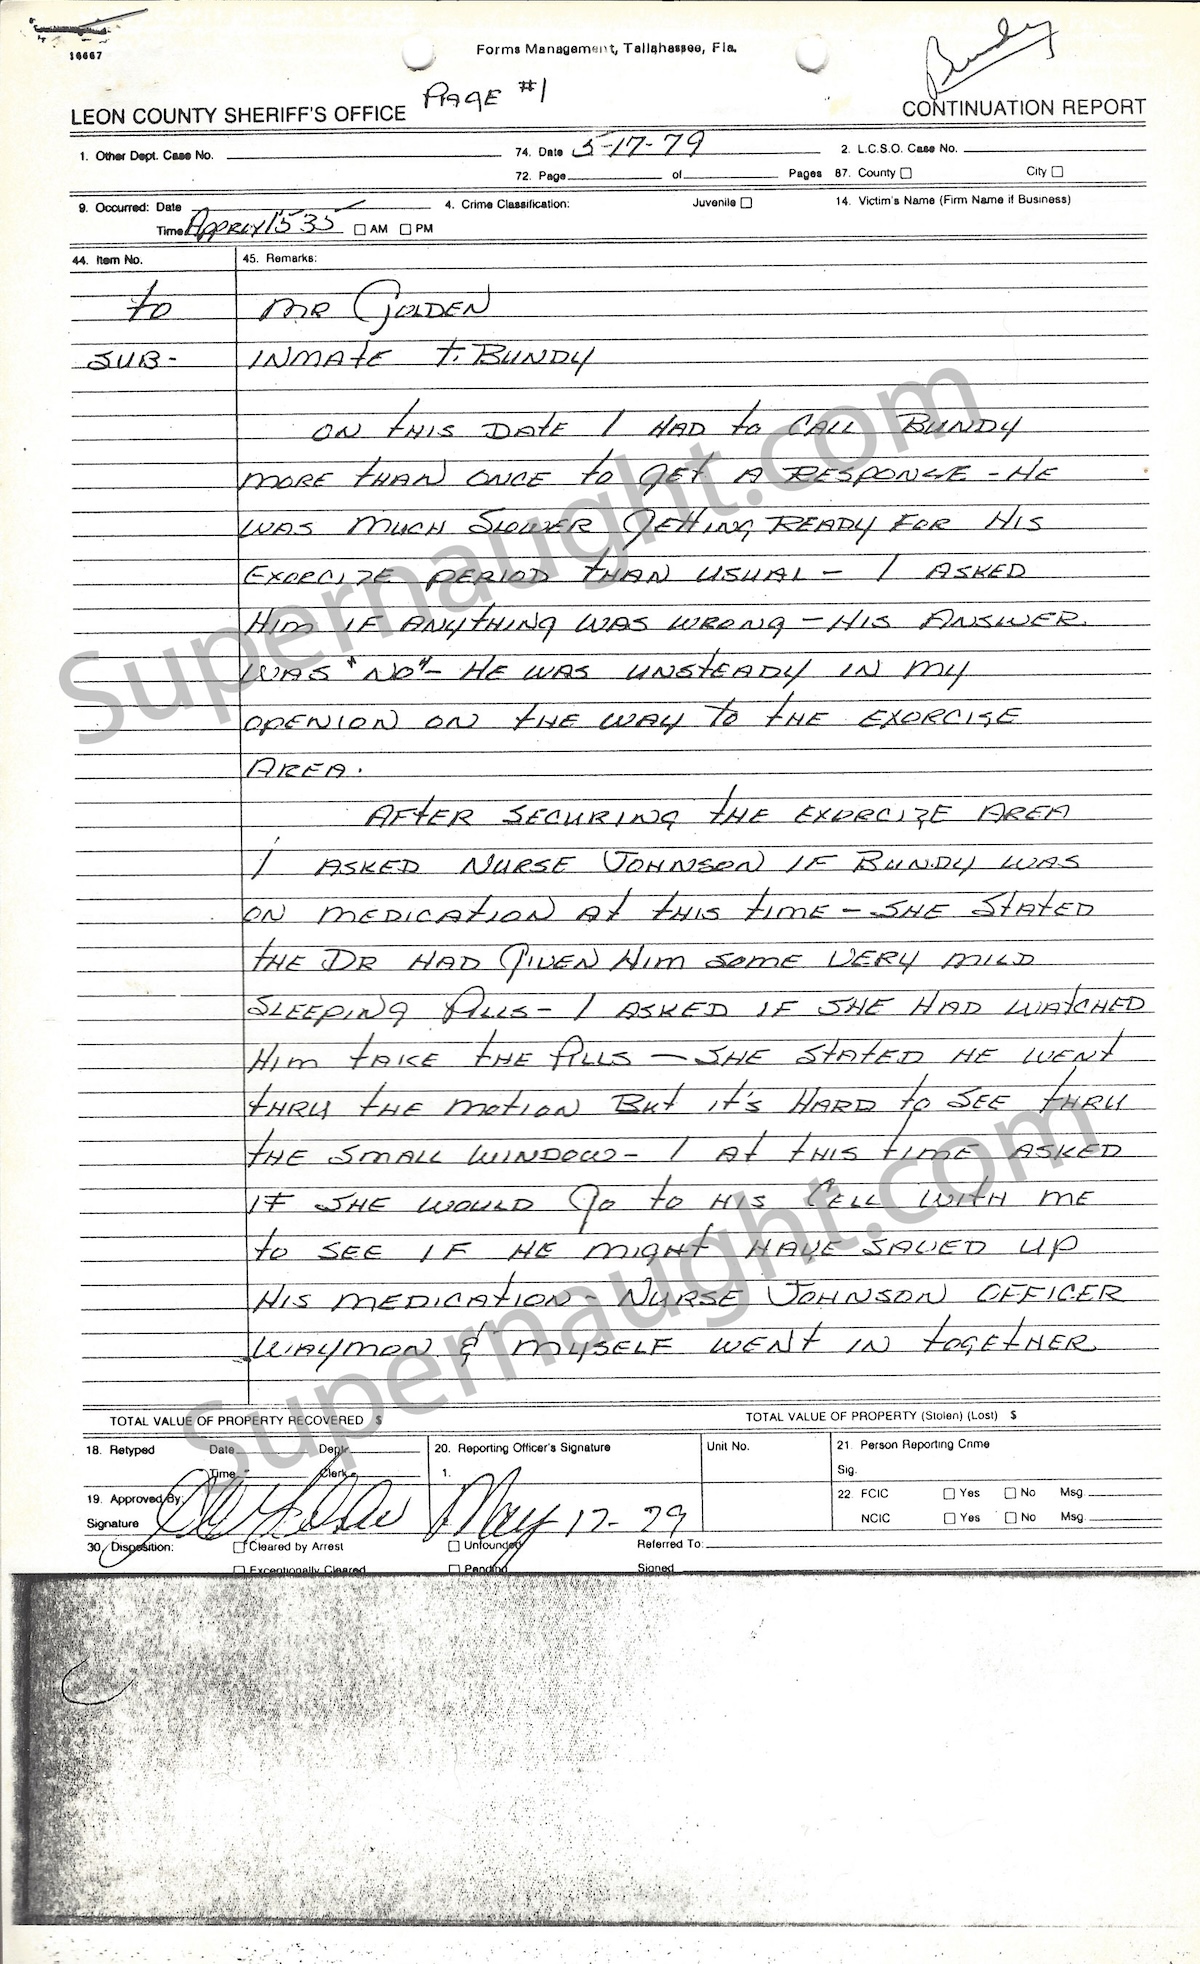 16667
Forms Management, Tallahassee, Fla.
Bundy
PAGE #1
LEON COUNTY SHERIFF'S OFFICE
CONTINUATION REPORT
1. Other Dept. Case No.
74. Date 5-17-79
2. L.C.S.O. Case No.
72. Page of Pages
87. County ☐ City ☐
9. Occurred: Date
4. Crime Classification:
Juvenile ☐
14. Victim's Name (Firm Name if Business)
Time 1535 ☐ AM ☐ PM
44. Item No.
45. Remarks:
to MR GOLDEN
SUB- INMATE T. BUNDY
ON THIS DATE I HAD to CALL BUNDY
MORE THAN ONCE to GET A RESPONSE - HE
WAS MUCH SLOWER GETTING READY FOR HIS
EXORCIZE PERIOD THAN USUAL - I ASKED
HIM IF ANYTHING WAS WRONG - HIS ANSWER
WAS "NO" - HE WAS UNSTEADY IN MY
OPENION ON THE WAY TO THE EXORCISE
AREA.
AFTER SECURING THE EXORCIZE AREA
I ASKED NURSE JOHNSON IF BUNDY WAS
ON MEDICATION AT THIS TIME - SHE STATED
THE DR HAD GIVEN HIM SOME VERY MILD
SLEEPING PILLS - I ASKED IF SHE HAD WATCHED
HIM TAKE THE PILLS - SHE STATED HE WENT
THRU THE MOTION BUT IT'S HARD to SEE THRU
THE SMALL WINDOW - I AT THIS TIME ASKED
IF SHE WOULD GO TO HIS CELL WITH ME
TO SEE IF HE MIGHT HAVE SAVED UP
HIS MEDICATION - NURSE JOHNSON OFFICER
WAYMON & MYSELF WENT IN TOGETHER
TOTAL VALUE OF PROPERTY RECOVERED $
TOTAL VALUE OF PROPERTY (Stolen) (Lost) $
18. Retyped Date Dept.
Time Clerk
20. Reporting Officer's Signature
1.
Unit No.
21. Person Reporting Crime
Sig.
19. Approved By:
Signature
May 17-79
22 FCIC ☐ Yes ☐ No Msg.
NCIC ☐ Yes ☐ No Msg.
30. Disposition: ☐ Cleared by Arrest ☐ Unfounded
Referred To:
☐ Exceptionally Cleared ☐ Pending
Signed
Supernaught.com
Supernaught.com